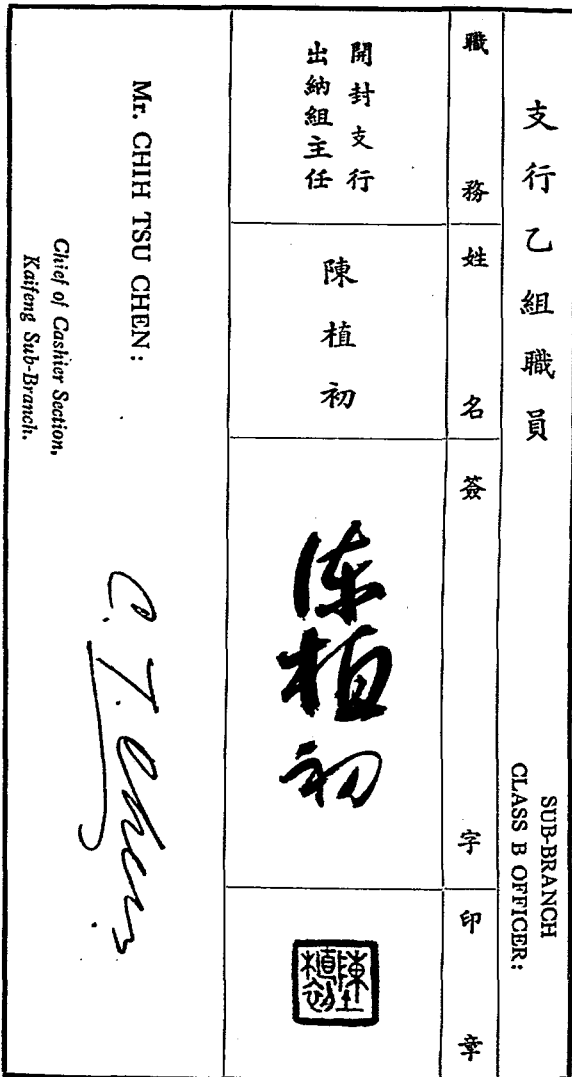 支行乙組職員
SUB-BRANCH
CLASS B OFFICER:
職務
姓名
簽字
印章
開封支行
出納組主任
陳植初
陳植初
陳植初
Mr. CHIH TSU CHEN:
Chief of Cashier Section,
Kaifeng Sub-Branch.
C. T. Chen